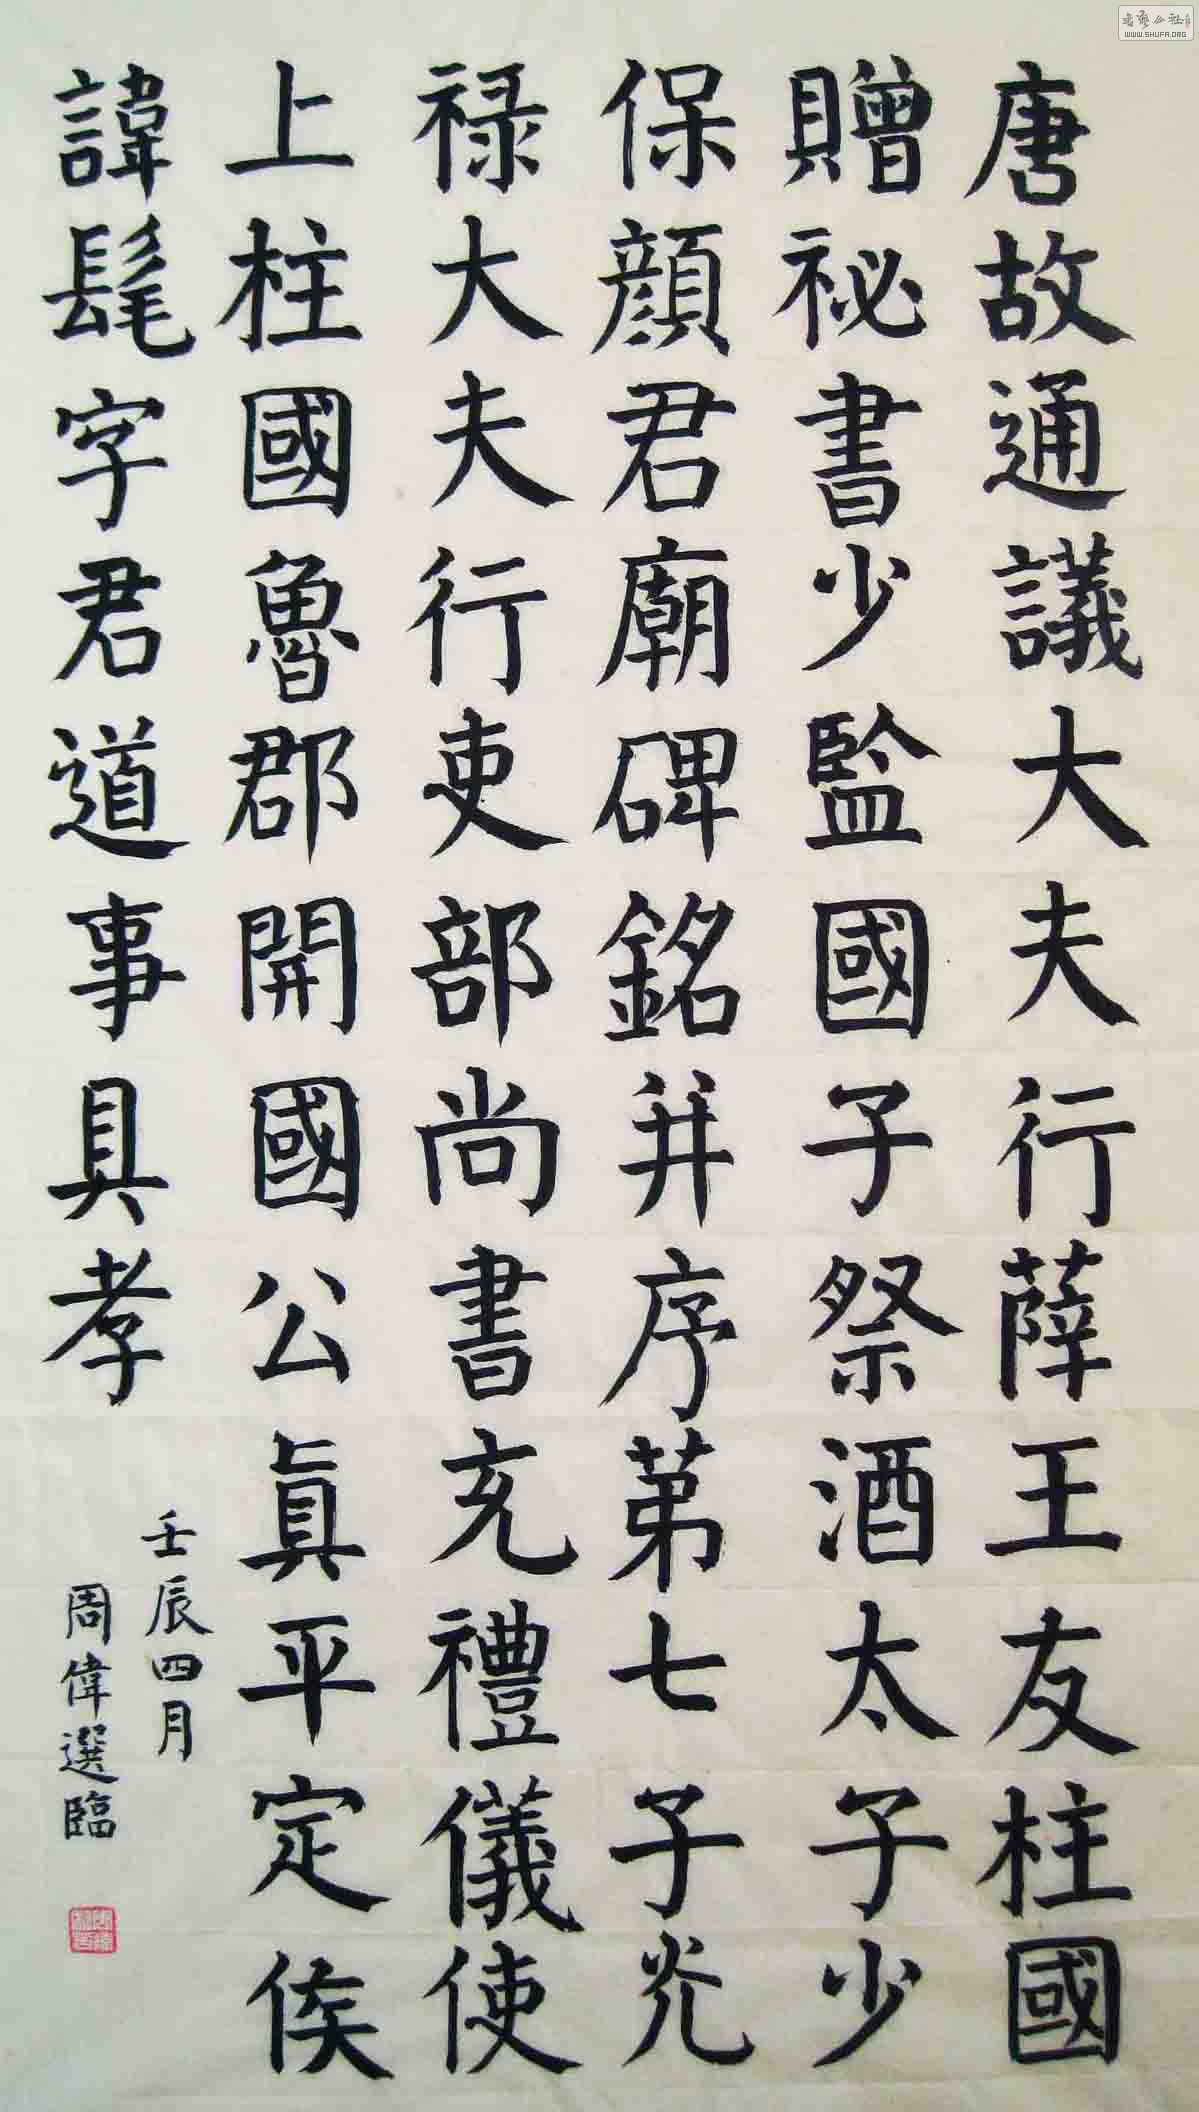 唐故通議大夫行薛王友柱國
贈祕書少監國子祭酒太子少
保顏君廟碑銘并序第七子光
祿大夫行吏部尚書充禮儀使
上柱國魯郡開國公真平定侯
諱髦字君道事具孝
壬辰四月
周偉選臨
WWW.SHUFA.ORG